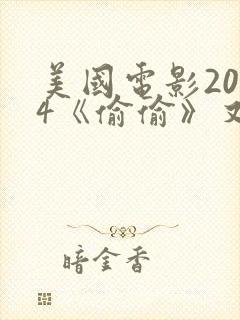 美國電影20
4《偷偷》
暗金香